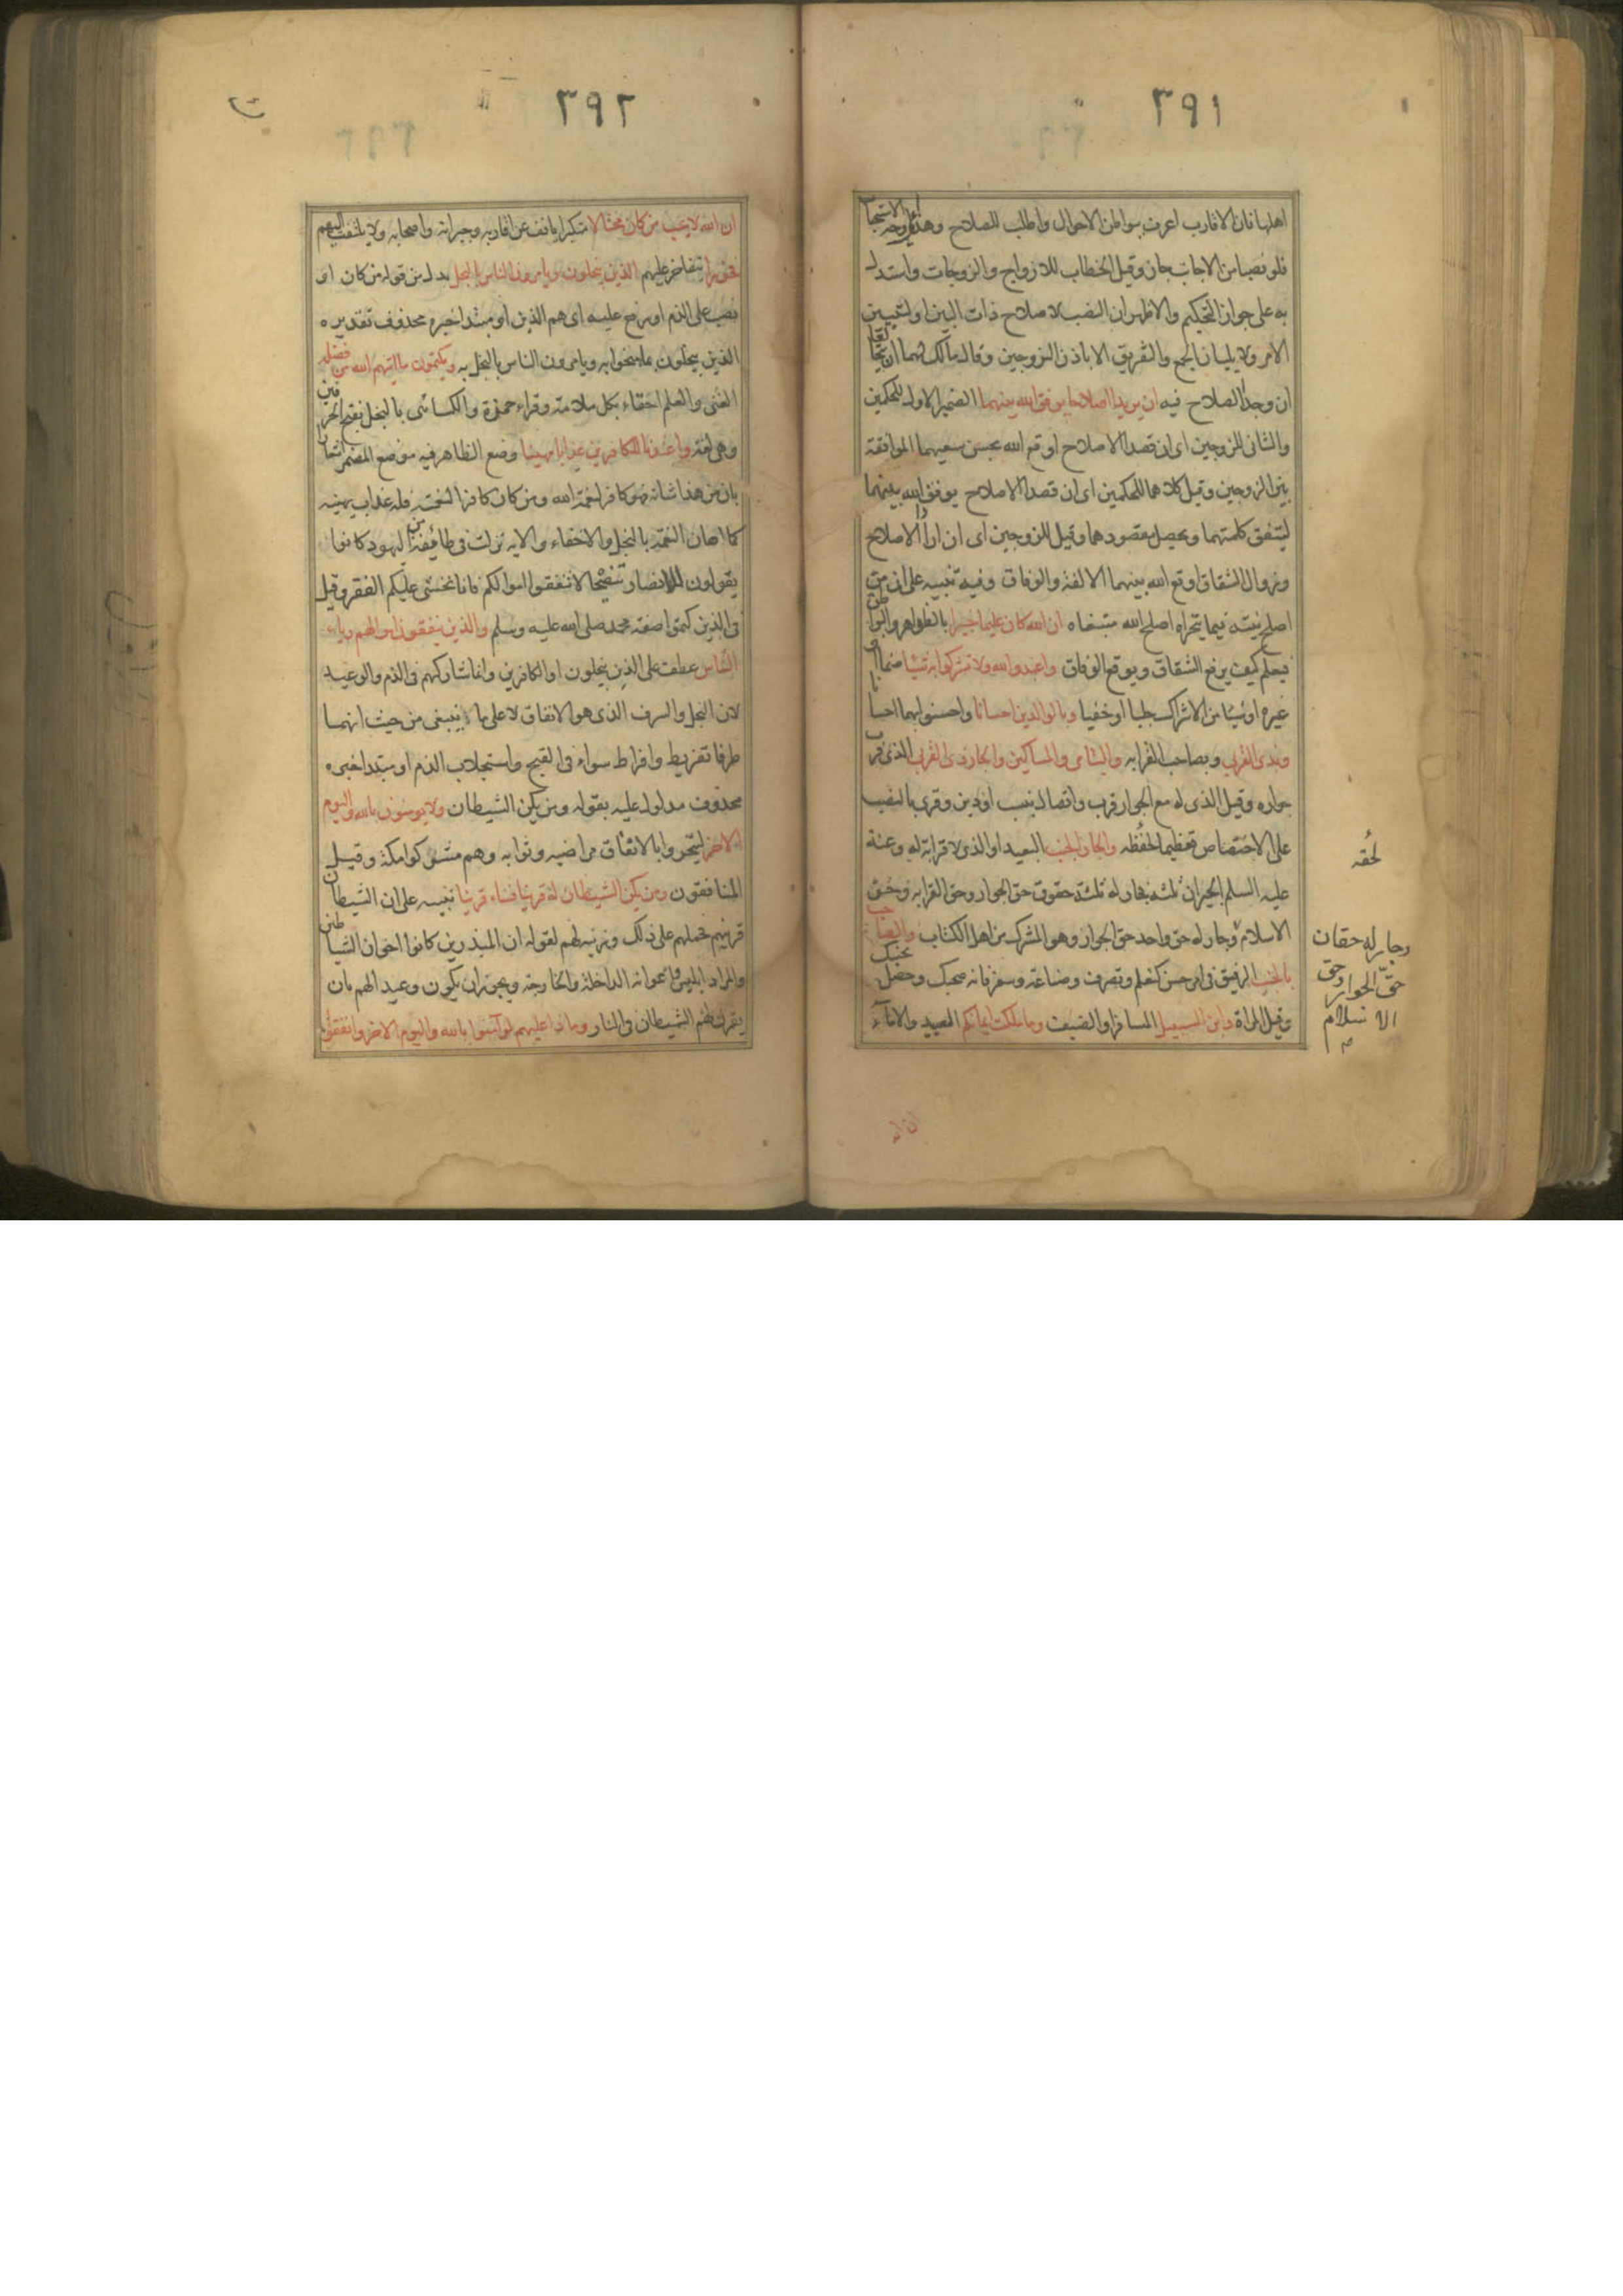 ٣٩١
اهلها فان الاقارب اعرف ببواطن الاحوال واطلب للصلاح وهذا على وجه الاستحبا
فلو نصبا من الاجانب جاز وقيل الخطاب للازواج والزوجات واستدل
به على جواز التحكيم والاظهر ان النصب لاصلاح ذات البين او لتبيين
الامر ولا يليان الجمع والتفريق الا باذن الزوجين وقال مالك لهما ان يتخالعا
ان وجدا الصلاح فيه ان يريدا اصلاحا يوفق الله بينهما الضمير الاول للحكمين
والثانى للزوجين اى ان قصدا الاصلاح اوقع الله بحسن سعيهما الموافقة
بين الزوجين وقيل كلاهما للحكمين اى ان قصدا الاصلاح يوفق الله بينهما
ليتفق كلمتهما ويحصل مقصودهما وقيل للزوجين اى ان ارادا الاصلاح
وزوال الشقاق اوقع الله بينهما الالفة والوفاق وفيه تنبيه على ان من
اصلح نيته فيما يتحراه اصلح الله مبتغاه ان الله كان عليما خبيرا بالظواهر والبواطن
فيعلم كيف يرفع الشقاق ويوقع الوفاق واعبدوا الله ولا تشركوا به شيئا صنما او
غيره او شيئا من الاشراك جليا او خفيا وبالوالدين احسانا واحسنوا بهما احسانا
وبذى القربى وبصاحب القرابه واليتامى والمساكين والجار ذى القربى الذى قرب
جواره وقيل الذى له مع الجوار قرب واتصال بنسب او دين وقرى بالنصب
على الاختصاص تعظيما لحقه والجار الجنب البعيد او الذى لا قرابة له وعنه
عليه السلم الجيران ثلثة فجار له ثلثة حقوق حق الجوار وحق القرابه وحق
الاسلام وجار له حق واحد حق الجوار وهو المشرك من اهل الكتاب والصاحب
بالجنب الرفيق فى امر حسن كتعلم وتصرف وصناعة وسفر فانه صحبك وحصل بجنبك
وقيل المراة وابن السبيل المسافر او الضيف وما ملكت ايمانكم العبيد والاماء
لحقه
وجار له حقان
حق الجوار وحق
الاسلام
٣٩٢
ان الله لا يحب من كان مختالا متكبرا يانف عن اقاربه وجيرانه واصحابه ولا يلتفت اليهم
فخورا يتفاخر عليهم الذين يبخلون ويامرون الناس بالبخل بدل من قوله من كان او
نصب على الذم او رفع عليه اى هم الذين او مبتدا خبره محذوف تقديره
الذين يبخلون بما منحوا به ويامرون الناس بالبخل به ويكتمون ما اتيهم الله من فضله
الغنى والعلم احقاء بكل ملامة وقراء حمزة والكسائى بالبخل بفتح الحرفين
وهى لغة واعتدنا للكافرين عذابا مهينا وضع الظاهر فيه موضع المضمر اشعارا
بان من هذا شانه فهو كافر لنعمة الله ومن كان كافرا لنعمته فله عذاب يهينه
كما اهان النعمة بالبخل والاخفاء والايه نزلت فى طائفة من اليهود كانوا
يقولون للانصار تنصيحا لا تنفقوا اموالكم فانا نخشى عليكم الفقر وقيل
فى الذين كتموا صفة محمد صلى الله عليه وسلم والذين ينفقون اموالهم رياء
الناس عطف على الذين يبخلون او الكافرين وانما شاركهم فى الذم والوعيد
لان البخل والسرف الذى هو الانفاق لا على ما ينبغى من حيث انهما
طرفا تفريط وافراط سواء فى القبح واستجلاب الذم او مبتدا خبره
محذوف مدلول عليه بقوله ومن يكن الشيطان ولا يومنون بالله واليوم
الاخر ليتحروا بالانفاق مراضيه وثوابه وهم مشركوا مكة وقيل
المنافقون ومن يكن الشيطان له قرينا فساء قرينا تنبيه على ان الشيطان
قرينهم فحملهم على ذلك وزينه لهم لقوله ان المبذرين كانوا اخوان الشياطين
والمراد ابليس واعوانه الداخلة والخارجة ويجوز ان يكون وعيدا لهم بان
يقرن لهم الشيطان فى النار وماذا عليهم لو آمنوا بالله واليوم الاخر وانفقوا